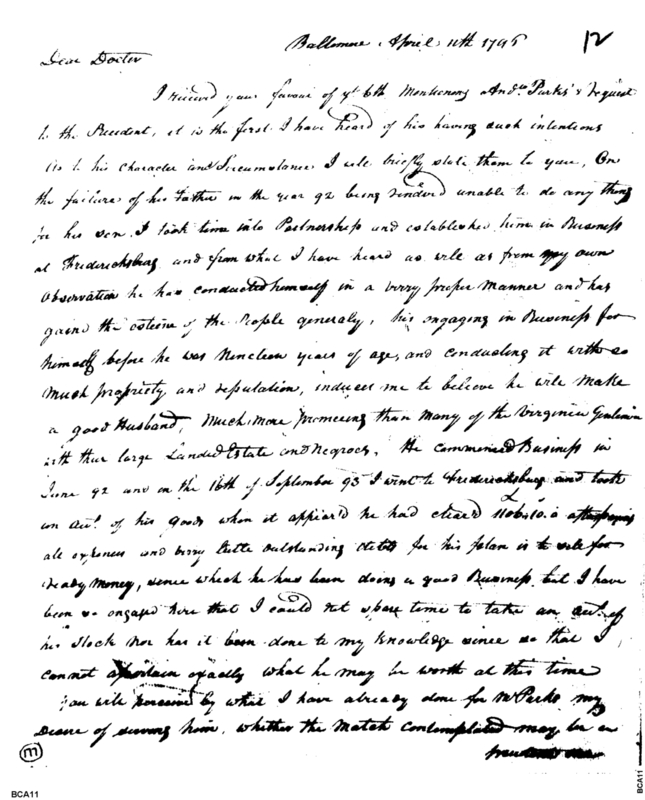 Baltimore April 11th 1795
12
Dear Doctor
I received your favour of ye 6th Mentioning Andw Parks's request
to the President, it is the first I have heard of his having such intentions
As to his Character and Circumstance I will briefly state them to you, On
the failure of his Father in the year 92 being rendered unable to do any thing
for his son I took him into Partnership and established him in Business
at Fredericksburg and from what I have heard as well as from my own
Observation he has conducted himself in a very proper Manner and has
gaind the esteem of the People generaly, his engaging in Business for
himself before he was Nineteen years of age, and conducting it with so
Much propriety and reputation, induces me to believe he will Make
a good Husband, Much more promising than many of the Virginia Gentlemen
with their large Landed Estate and Negroes, He commenced Business in
June 92 and on the 16th of September 93 I went to Fredericksburg and took
an act. of his goods when it appear'd he had clear'd after paying
all expences and very little outstanding debts for his plan is to sell for
ready Money, since which he has been doing a good Business but I have
been so engaged here that I could not spare time to take an act. of
his Stock nor has it been done to my knowledge since so that I
cannot ascertain exactly what he may be worth at this time
You will perceive by what I have already done for Mr Parks my
Desire of serving him, whether the Match contemplated may be a
m
BCA11
BCA11